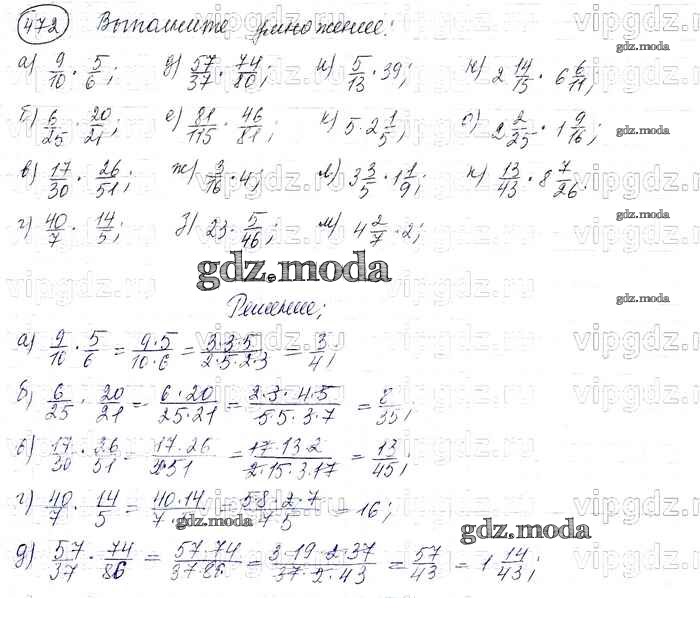 472 Выполните умножение:
а) 9/10 · 5/6; д) 57/37 · 74/80; и) 5/13 · 39; н) 2 14/15 · 6 6/11;
б) 6/25 · 20/21; е) 81/115 · 46/81; к) 5 · 2 1/5; о) 2 2/25 · 1 9/16;
в) 17/30 · 26/51; ж) 3/16 · 4; л) 3 3/5 · 1 1/9; п) 13/43 · 8 7/26.
г) 40/7 · 14/5; з) 23 · 5/46; м) 4 2/7 · 2;
gdz.moda
Решение;
а) 9/10 · 5/6 = 9·5/10·6 = 3·3·5/2·5·2·3 = 3/4;
б) 6/25 · 20/21 = 6·20/25·21 = 2·3·4·5/5·5·3·7 = 8/35;
в) 17/30 · 26/51 = 17·26/51 = 17·13·2/2·15·3·17 = 13/45;
г) 40/7 · 14/5 = 40·14/7 = 5·8·2·7/7·5 = 16;
gdz.moda
д) 57/37 · 74/86 = 57·74/37·86 = 3·19·2·37/37·2·43 = 57/43 = 1 14/43;
gdz.moda
vipgdz.ru